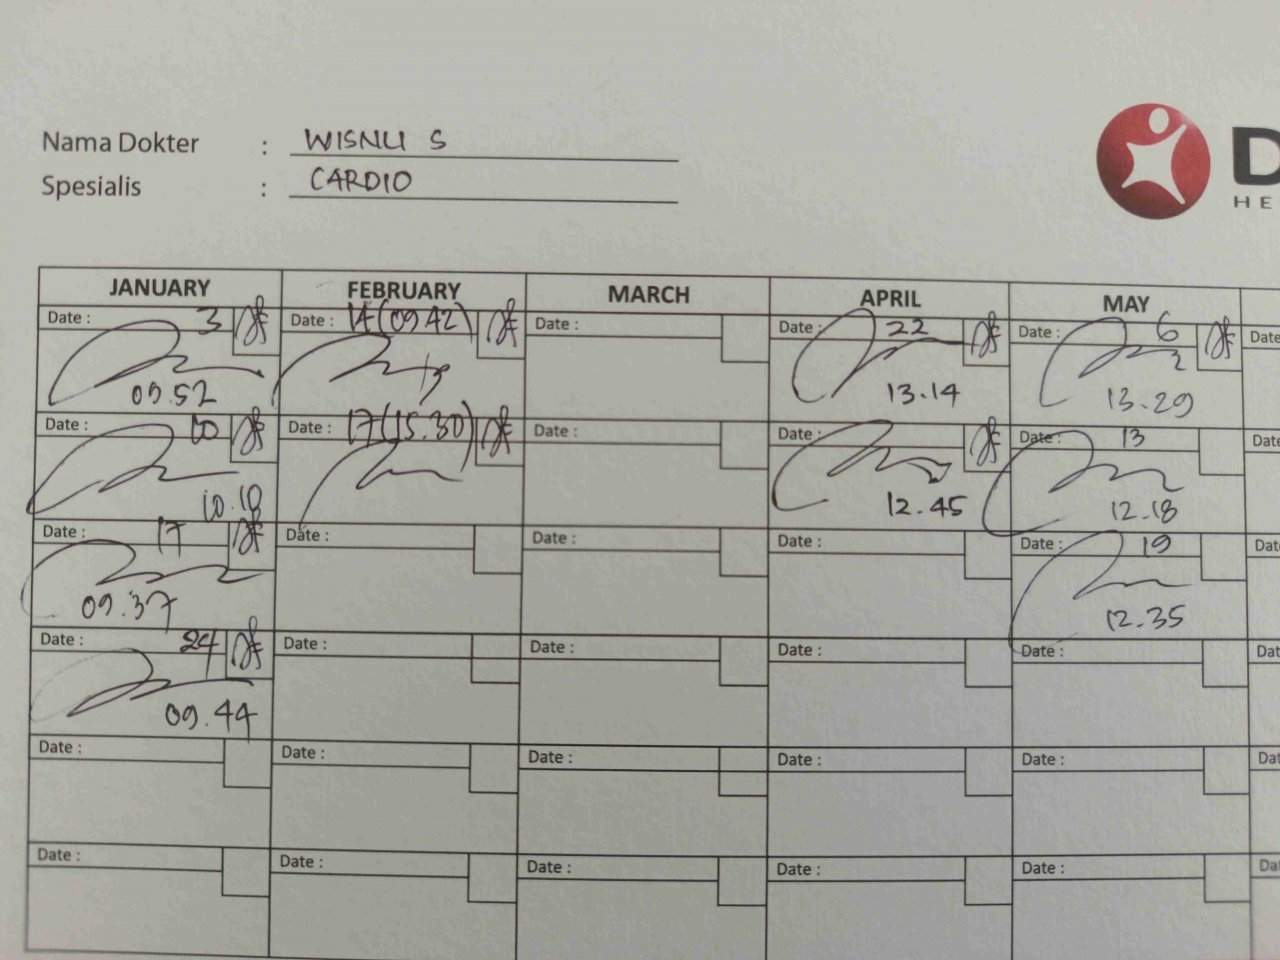 Nama Dokter : WISNU S
Spesialis : CARDIO
D
HE
JANUARY FEBRUARY MARCH APRIL MAY
Date : 3 Date : 14 (09.42) Date : Date : 22 Date : 6 Date
09.52 13.14 13.29
Date : 10 Date : 17 (15.30) Date : Date : Date : 13 Date
10.18 12.45 12.18
Date : 17 Date : Date : Date : Date : 19 Date
09.37 12.35
Date : 24 Date : Date : Date : Date : Dat
09.44
Date : Date : Date : Date : Date : Dat
Date : Date : Date : Date : Date : Dat